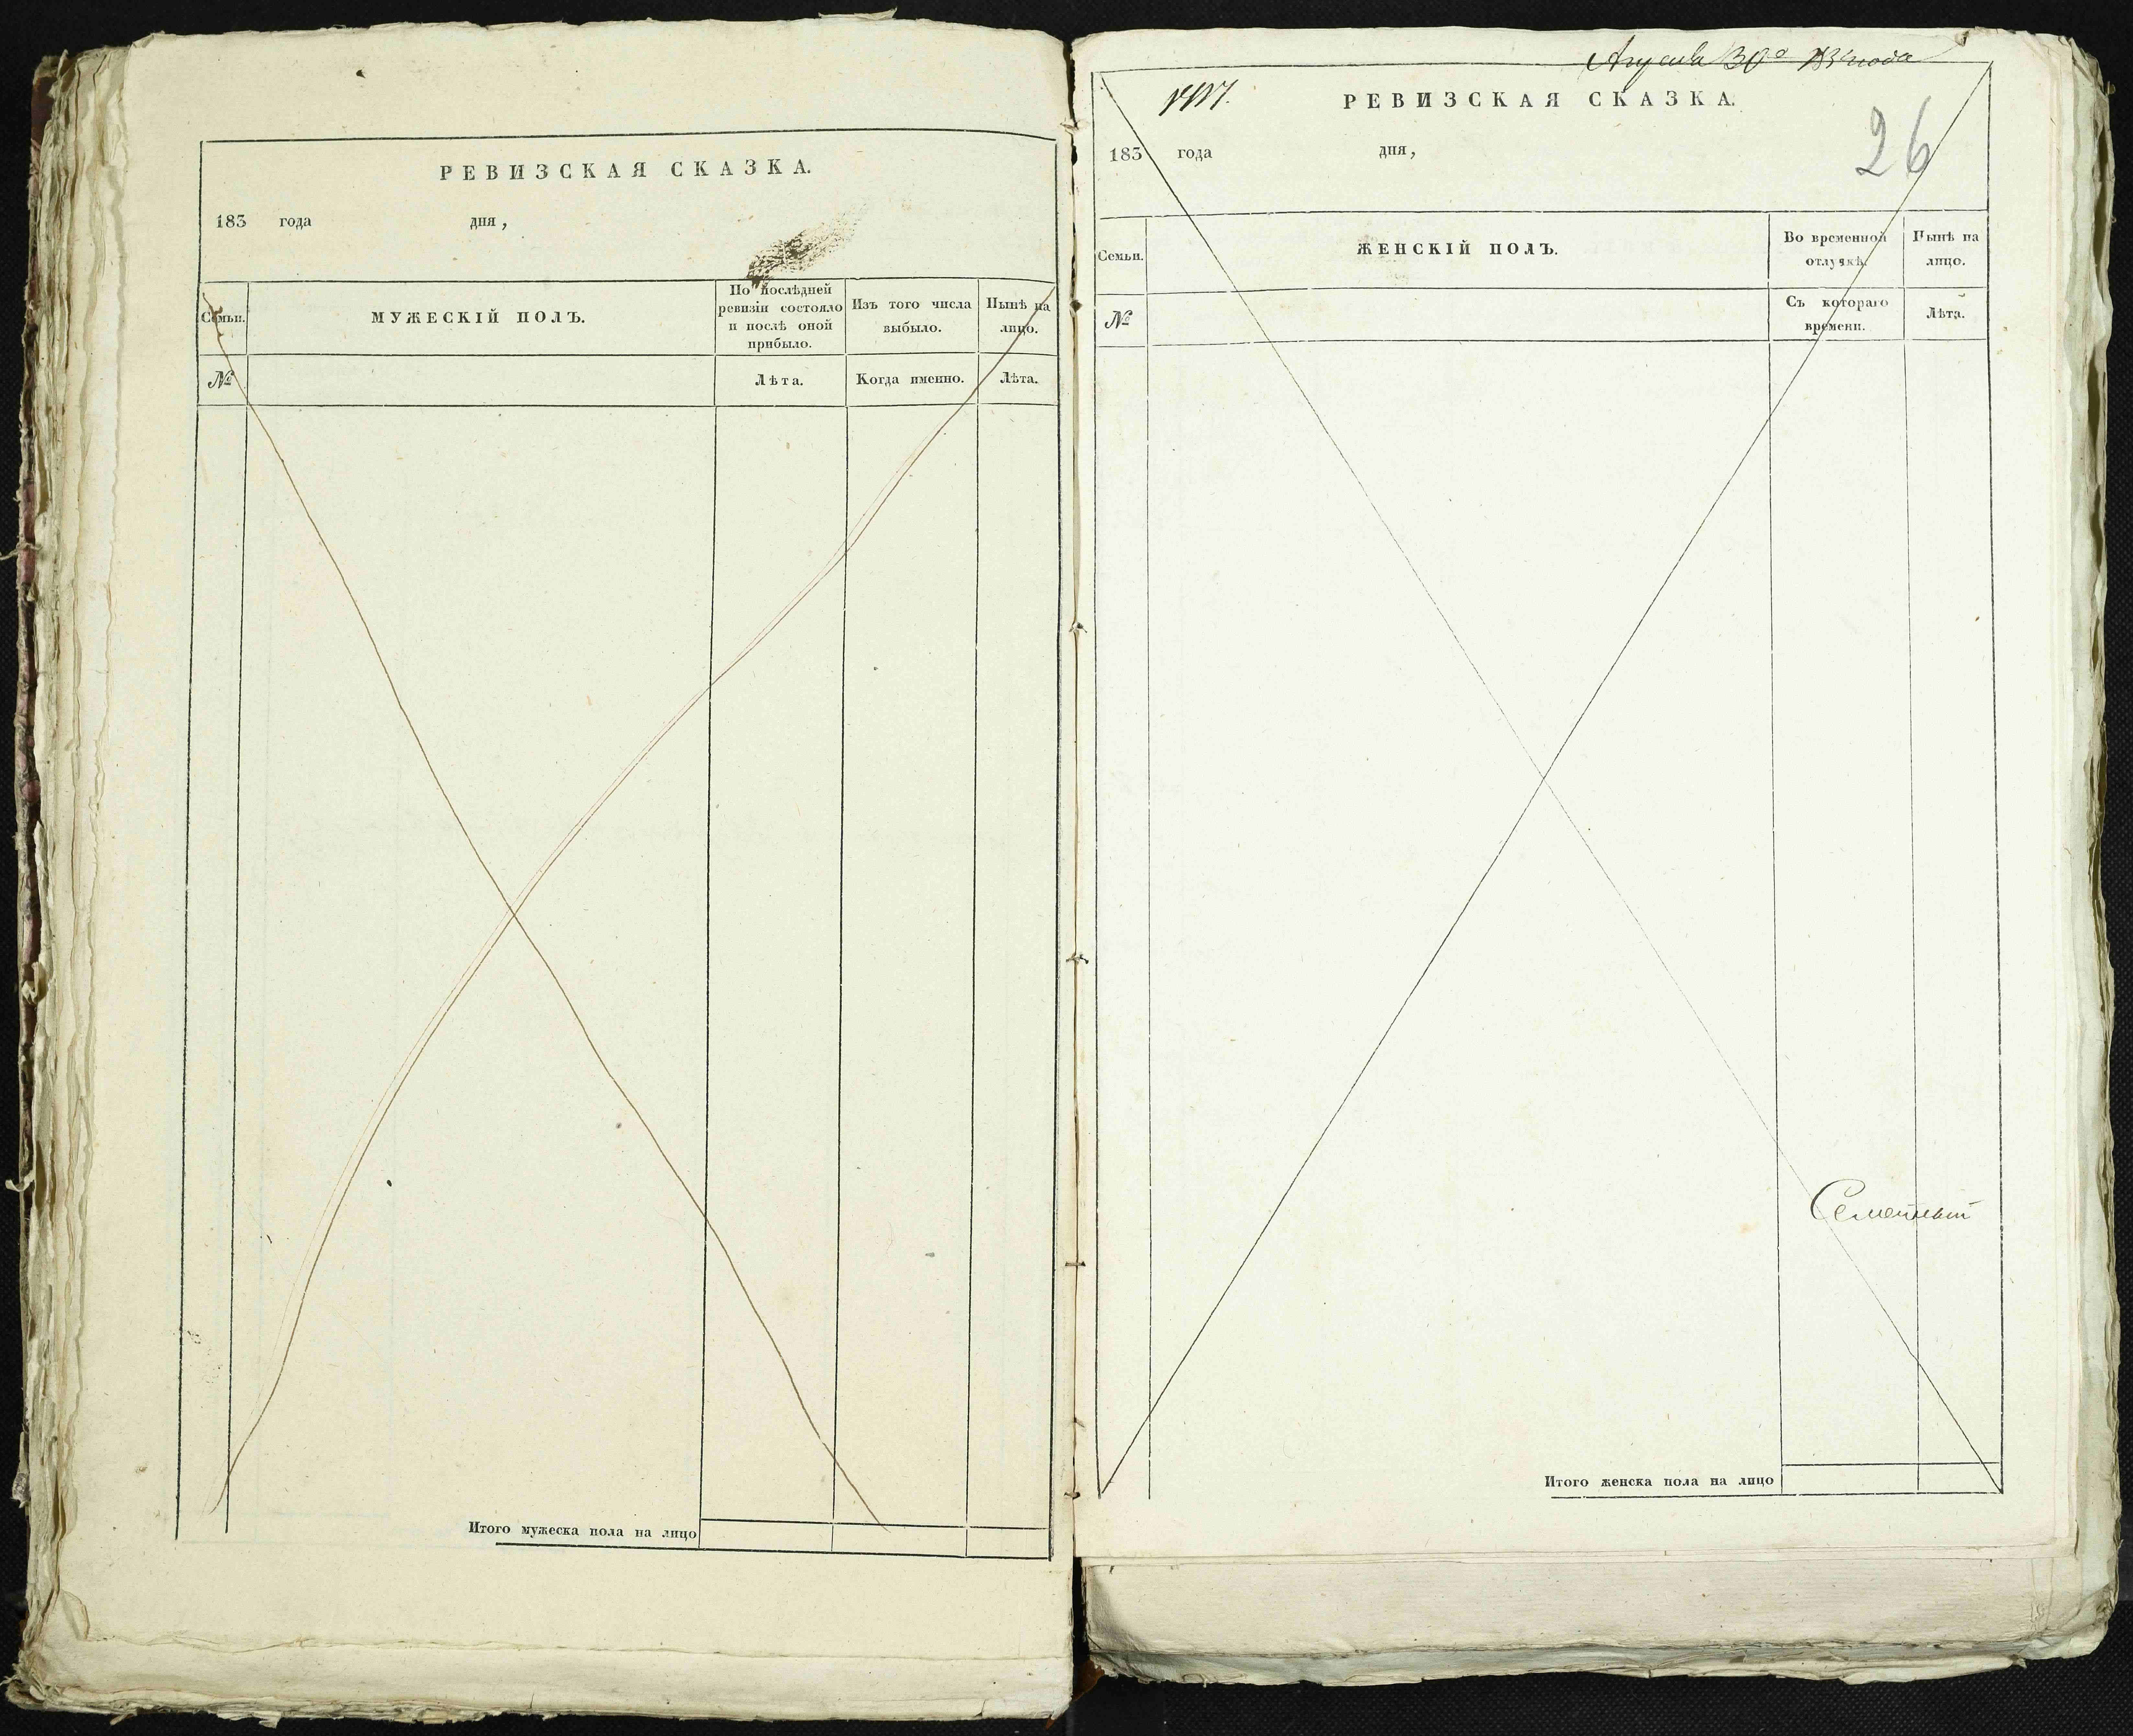 РЕВИЗСКАЯ СКАЗКА.
183 года дня,
Семьи.
МУЖЕСКІЙ ПОЛЪ.
По послѣдней ревизіи состояло и послѣ оной прибыло.
Изъ того числа выбыло.
Нынѣ на лицо.
№
Лѣта.
Когда именно.
Лѣта.
Итого мужеска пола на лицо
30го
года
РЕВИЗСКАЯ СКАЗКА.
26
183 года дня,
Семьи.
ЖЕНСКІЙ ПОЛЪ.
Во временной отлучкѣ.
Нынѣ на лицо.
№
Съ котораго времени.
Лѣта.
Итого женска пола на лицо